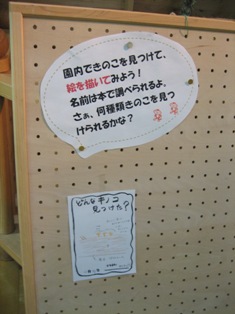 園内できのこを見つけて、
絵を描いてみよう！
名前は本で調べられるよ。
さぁ、何種類きのこを見つ
けられるかな？
どんなキノコ
見つけた？